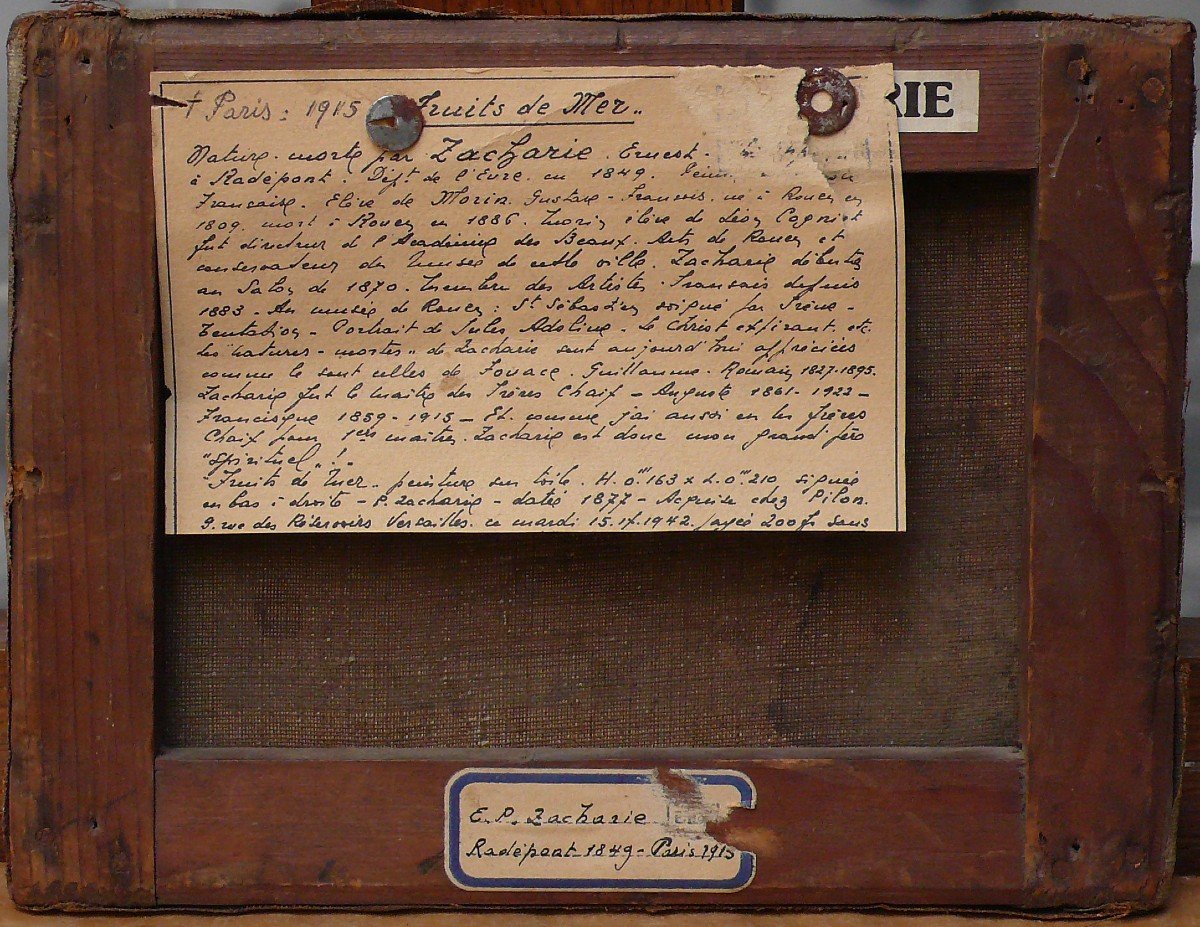 † Paris : 1915 Fruits de Mer..
RIE
Nature . morte par Zacharie . Ernest .
à Radepont . Dépt de l'Eure . en 1849 .
Française . Elève de Morin Gustave - François . né à Rouen en
1809 . mort à Rouen en 1886 . Morin élève de Léon Cogniet
fut directeur de l'Académie des Beaux . Arts de Rouen et
conservateur du musée de cette ville . Zacharie débuta
au Salon de 1870 . membre des Artistes . Français depuis
1883 - Au musée de Rouen : St Sébastien soigné par Irène -
Tentation - Portrait de Jules Adeline - Le Christ expirant, etc.
Les "natures - mortes" de Zacharie sont aujourd'hui appréciées
comme le sont celles de Fouace . Guillaume . Romain 1827-1895.
Zacharie fut le maître des Frères Chaix - Auguste 1861 - 1922 -
Francisque 1859 - 1915 - Et comme j'ai aussi eu les frères
Chaix pour 1ers maîtres . Zacharie est donc mon grand père
"spirituel" !
"Fruits de Mer . peinture sur toile . H. 0m 163 x L. 0m 210 signée
en bas à droite - P. Zacharie - datée 1877 - Acquise chez Pilon.
9. rue des Réservoirs Versailles . ce mardi 15.1X.1942. payée 200f sans
E. P. Zacharie
Radépont 1849 - Paris 1915